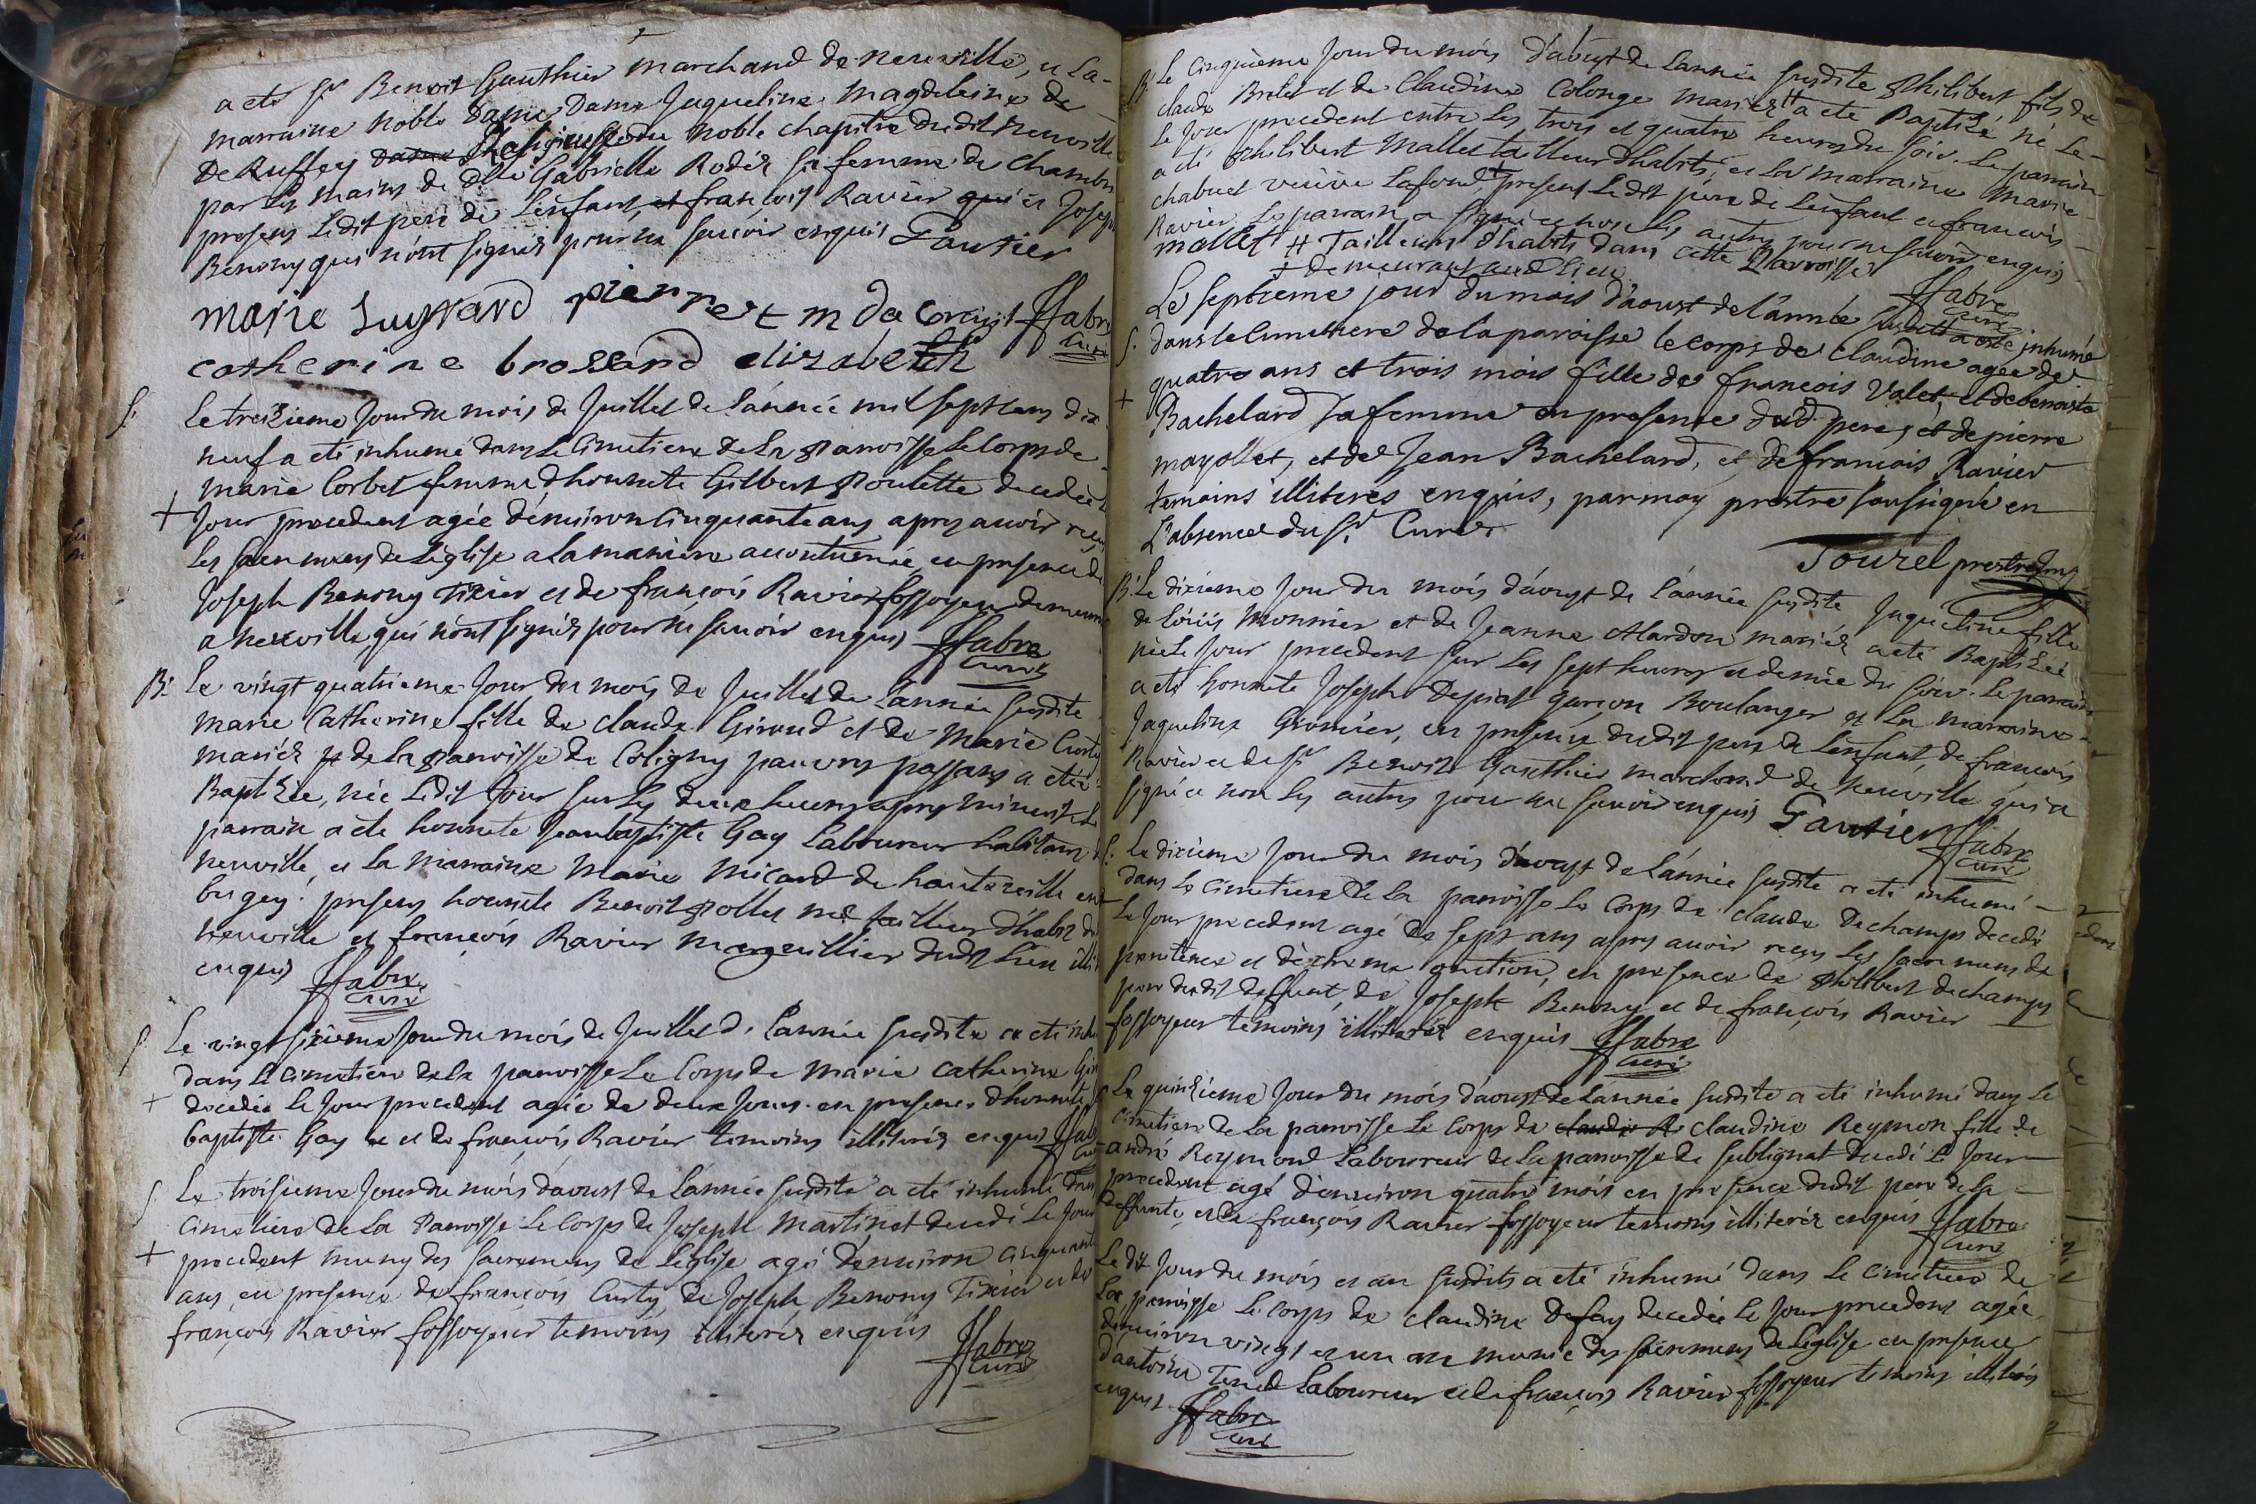 a ete Sr Benoit Gauthier marchand de neuville, et la-
marraine noble dame Dame Jaqueline Magdeleine de
de Ruffey dame Religieusse du noble chapitre dudit neuville
par les mains de dlle Gabrielle Rodéz sa femme de chambre
presens ledit pere de l'enfant, et françois Ravier qui et Joseph
Benony qui n'ont signéz pour ne sçavoir enquis Gautier
marie Lugrand pierret m da coraist ffabre
catherine brossard elizabeth curé
S. Le treizieme Jour du mois de Juillet de l'année mil sept cens dix
neuf a eté inhumé dans le cimetiere de la paroisse le corps de
marie Corbet femme d'honnete Gilbert Poulette decedée le
+ Jour precedent agée d'environ cinquante ans apres avoir reçeu
les sacremens de l'église a la maniere accoutumée, en presence de
Joseph Benony Tixier et de françois Ravier fossoyeur demeurant
a neuville qui n'ont signéz pour ne sçavoir enquis ffabre
curé
B. Le vingt quatrieme Jour du mois de Juillet de l'année susdite
marie Catherine fille de claude Giroud et de Marie Curty
mariéz de la paroisse de Coligny pauvres passans a eté
Baptizée, née ledit Jour sur les deux heures apres minuit le
parrain a ete honnete Jeanbaptiste Gay Laboureur habitant de
neuville, et la marraine Marie Micard de hauteville en
bugey. presens honnete Benoit Pollet me tailleur d'habit de
neuville et françois Ravier marguillier dudt lieu illi
enquis ffabre
curé
S. Le vingt sixieme Jour du mois de Juillet d. l'année susdite a eté inhu
dans le cimetiere de la paroisse le corps de marie catherine Gir
+ decedée le Jour precedent agée de deux Jours en presence d'honnete J
baptiste Gay et de françois Ravier temoins illiteréz enquis ffab
cu
S. Le troisieme Jour du mois d'aoust de l'année susdite a eté inhumé dans
cimetiere de la Paroisse le corps de Joseph martinet decedé le Jour
+ precedent muny des sacremens de l'église agé d'environ cinquante
ans, en presence de françois Curty, de Joseph Benony Tixier et de
françois Ravier fossoyeur temoins illiteréz enquis
ffabre
curé
B. Le cinquieme Jour du mois d'aoust de l'année susdite Philibert fils de
claude Brelet et de Claudine Colonge mariéz # a ete Baptizé né le-
le Jour precedent entre les trois et quatre heures du soir. Le parrain
a eté Philibert Mallet tailleur d'habits, et la marraine Marie
chabuet veuve Lafond, + presens ledit pere de l'enfant et françois
Ravier le parrain a signé et non les autres pour ne sçavoir enquis
mallet # Tailleurs d'habits dans cette Parroisse
+ demeurant audt lieu ffabre
curé
Le septieme jour du mois d'aoust de l'année susditte a esté inhumé
S. dans le cimetiere de la paroisse le corps de claudine agée de
quatre ans et trois mois fille de francois Valet, et de benoiste
+ Bachelard sa femme en presence dud. pere, et de pierre
mayollet, et de Jean Bachelard, et de francois Ravier
temoins illiterés enquis, par moy prestre soussigné en
l'absence du Sr. Curé.
Tourel prestre
B. Le dixieme Jour du mois d'aoust de l'année susdite Jaqueline fille
de loüis Monnier et de Jeanne Mardon mariéz a eté Baptizée
née le Jour precedent sur les sept heures et demie du soir. Le parrain
a eté honnete Joseph Depiat garçon Boulanger et la marraine
Jaqueline Gromier, en presence dudit pere de l'enfant, de francois
Ravier et de Sr Benoit Gauthier marchand de Neuville qui a
signé et non les autres pour ne sçavoir enquis Gautier ffabre
curé
S. Le dixieme Jour du mois d'aoust de l'année susdite a eté inhumé -
dans le cimetiere de la paroisse le corps de claude Dechamps decedé
le Jour precedent agé de sept ans apres avoir reçeu les sacremens de
penitence et d'extreme onction, en presence de Philibert dechamps
pere dudit deffunt, de Joseph Benony et de françois Ravier
fossoyeur temoins illiteréz enquis ffabre
curé
S. Le quinzieme Jour du mois d'aoust de l'année susdite a eté inhumé dans le
cimetiere de la paroisse le corps de claude R claudine Reymon fille de
andré Reymond Laboureur de la paroisse de sublignat decedé le Jour
precedent agé d'environ quatre mois en presence dudit pere de la
deffunte, et de françois Ravier fossoyeur temoins illiteréz enquis ffabre
curé
Le dit Jour du mois et an susdits a eté inhumé dans le cimetiere de
la paroisse le corps de claudine Defay decedée le Jour precedent agée
d'environ vingt et un an munie des sacremens de l'église en presence
d'antoine Laboureur et de françois Ravier fossoyeur temoins illiteréz
enquis ffabre
curé